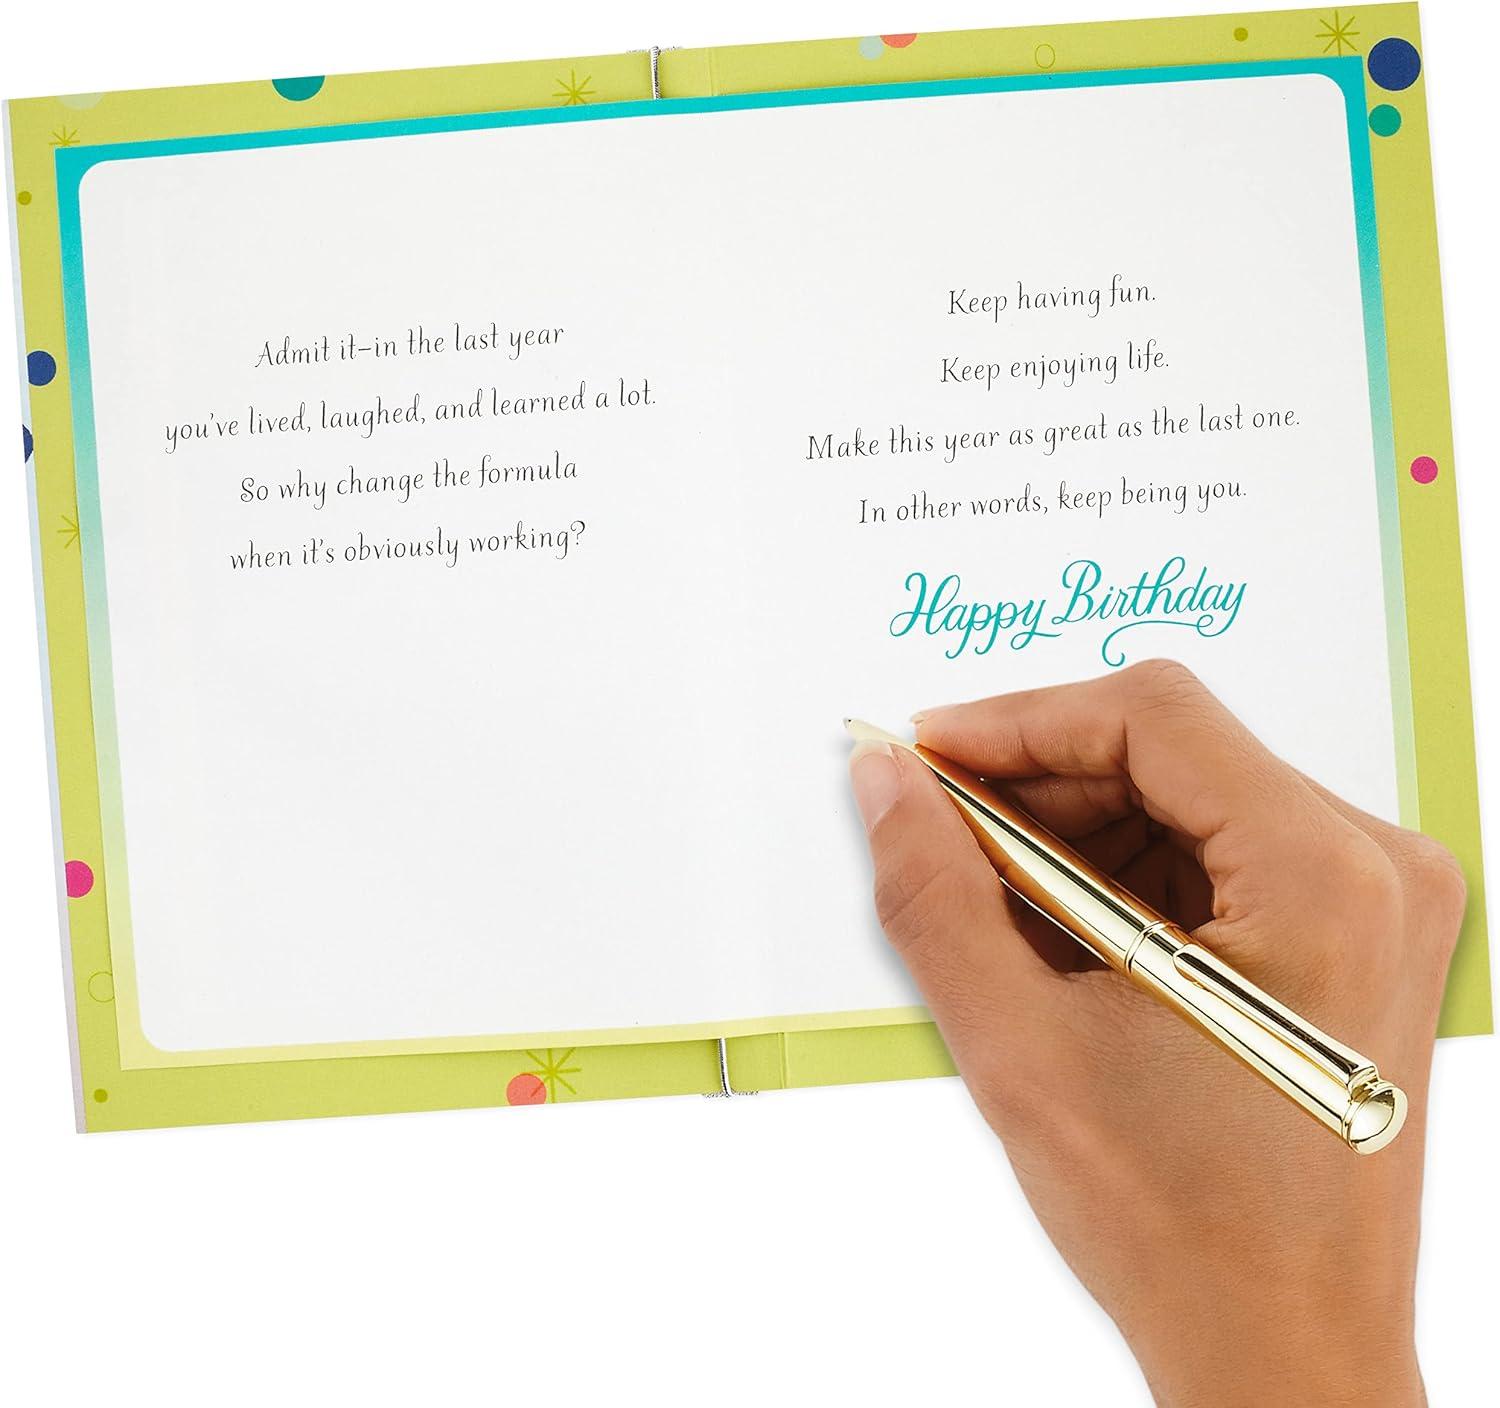 Admit it–in the last year
you've lived, laughed, and learned a lot.
So why change the formula
when it's obviously working?
Keep having fun.
Keep enjoying life.
Make this year as great as the last one.
In other words, keep being you.
Happy Birthday